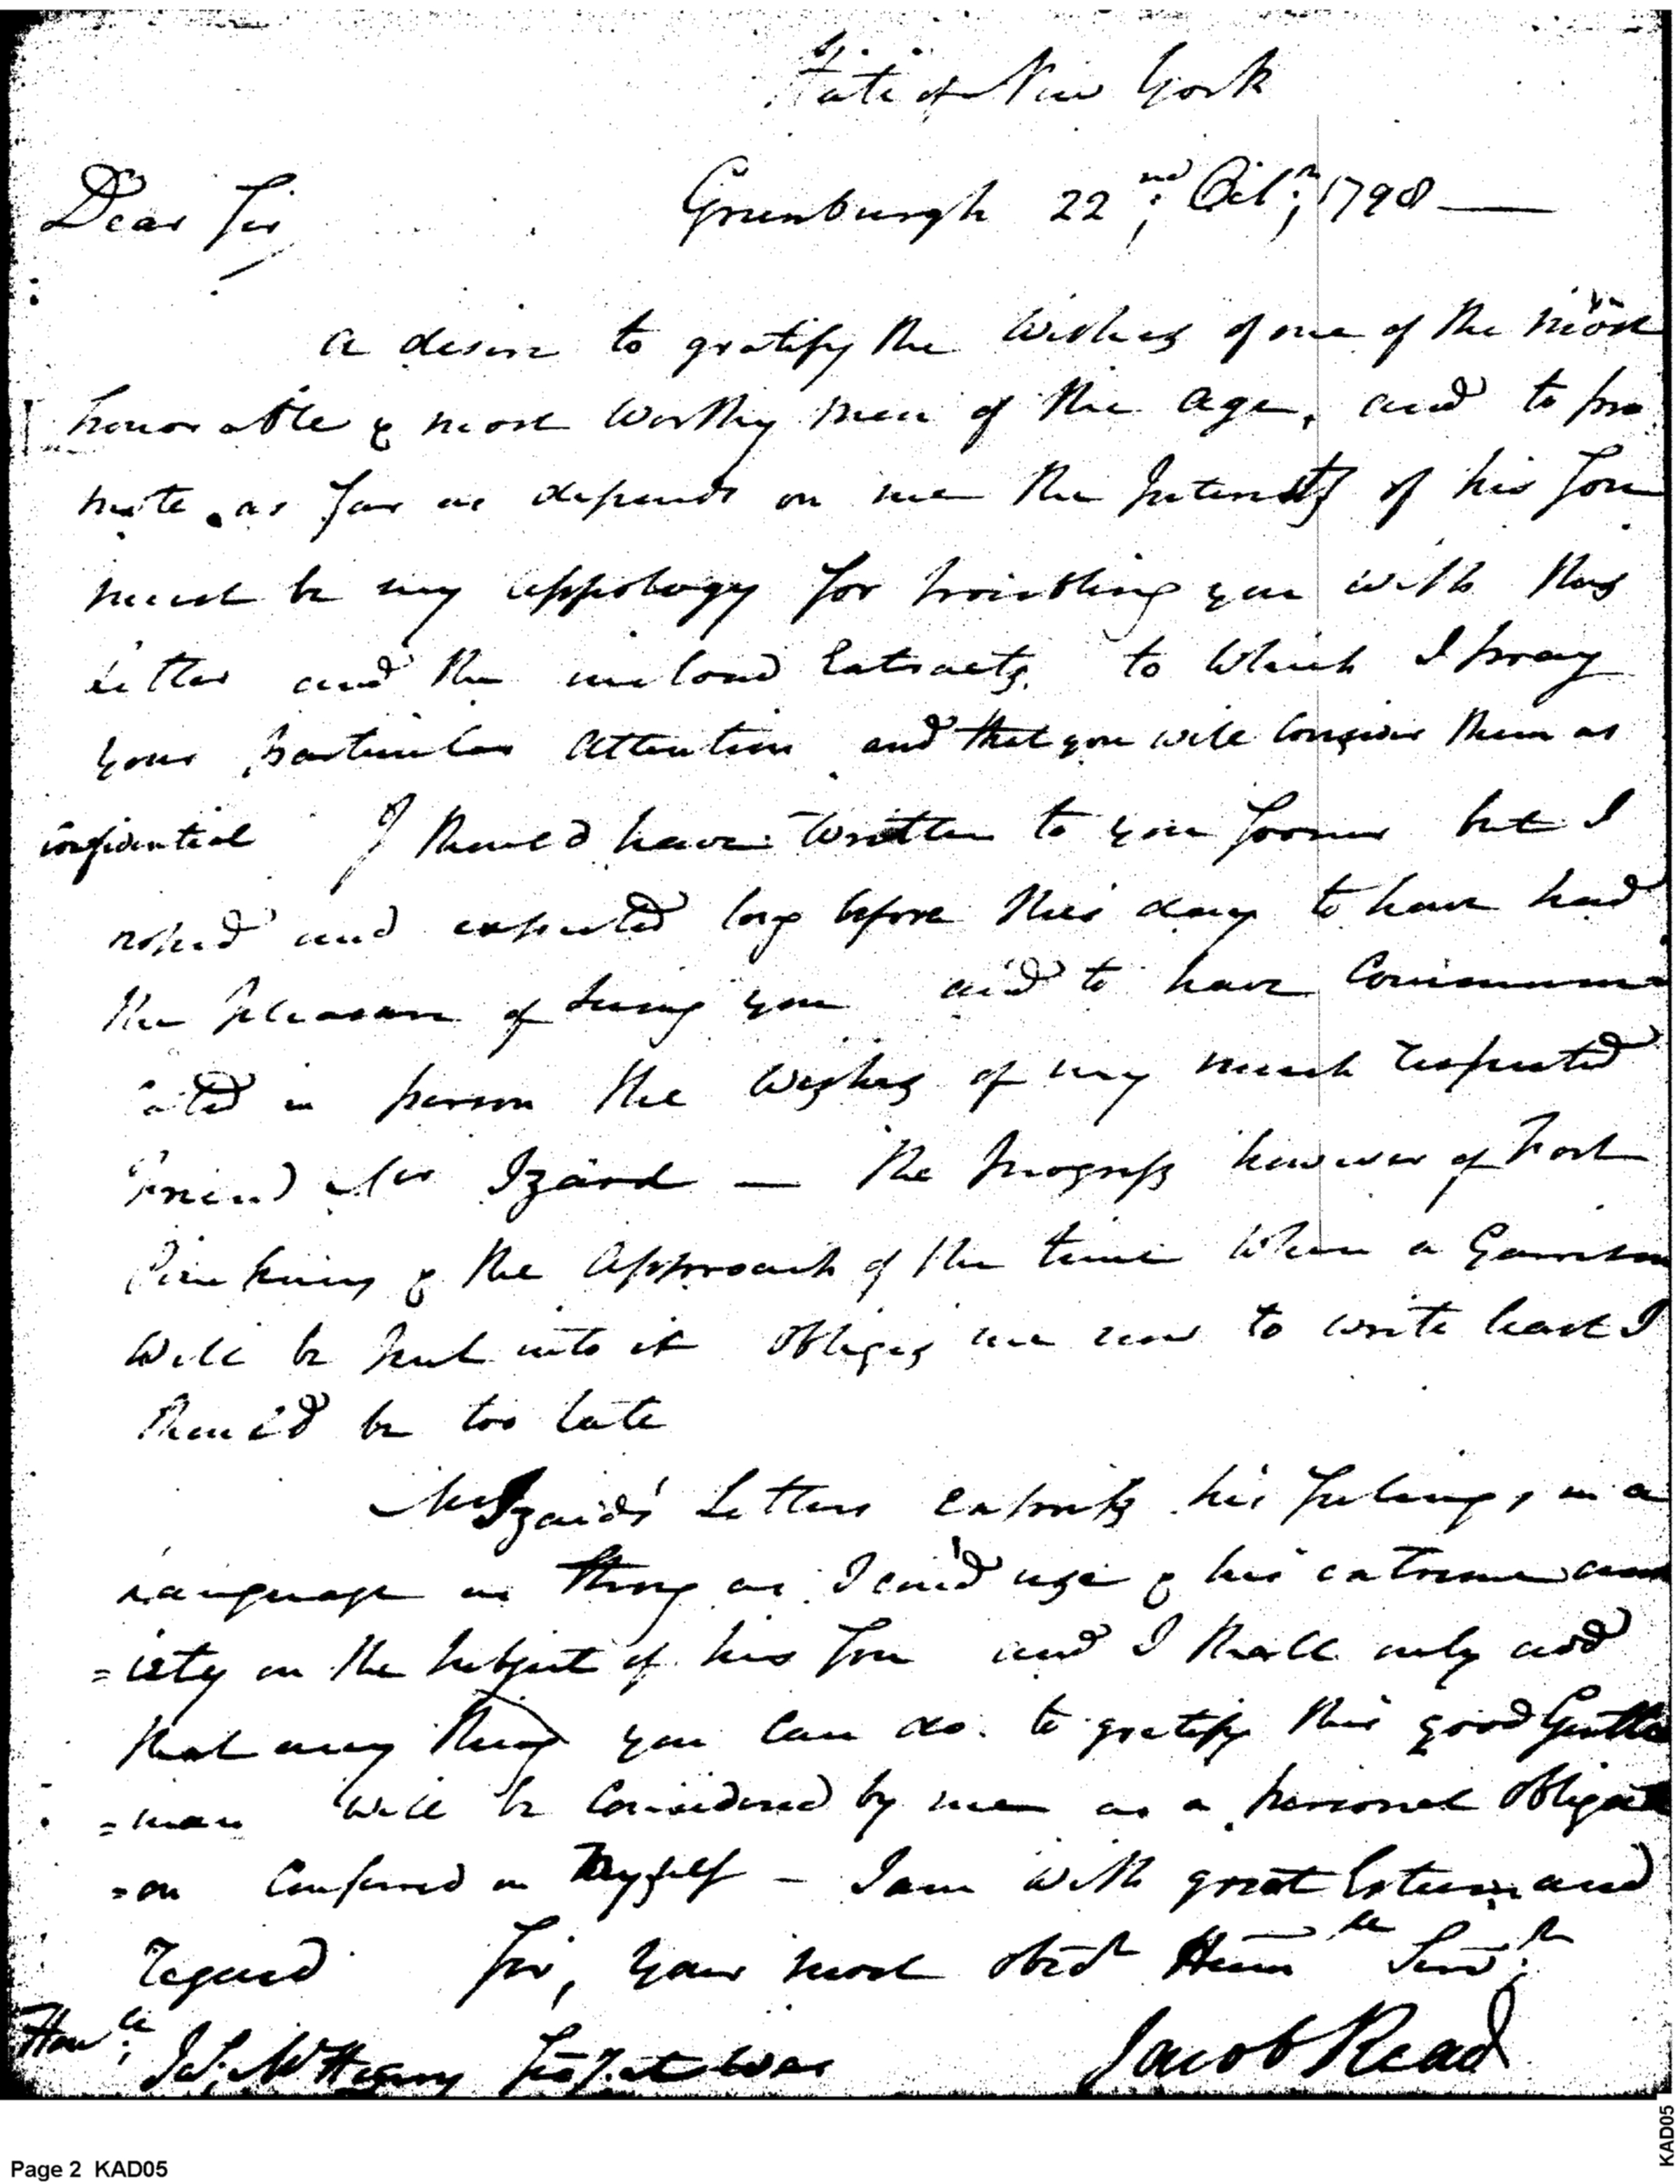 State of New York
Dear Sir
Greenburgh 22nd; Octr; 1798
a desire to gratify the Wishes of one of the most
honorable & most worthy men of the age, and to pro
mote as far as depends on me the Interests of his Son
must be my appology for troubling you with this
Letter and the inclosed Extracts to Which I pray
your particular attention and that you will consider them as
confidential I should have written to you sooner but I
hoped and expected long before this day to have had
the pleasure of seeing you and to have Communi
cated in person the Wishes of my much respected
Friend Mr Izard — The Progress however of Fort
Pinckney & the approach of the time When a Garrison
will be put into it obliges me now to write least I
should be too late
Mr Izard's Letters express his feelings, in a
Language as strong as I cou'd use & his extreme anx
=iety on the subject of his Son and I shall only add
that any thing you can do to gratify this good Gentle
=man will be Considered by me as a personal obligati
=on Conferred on Myself — I am with great Esteem and
regard Sir, your most obedt Humle Servt;
Honle; Js. McHenry Secy at War
Jacob Read
Page 2 KAD05
KAD05